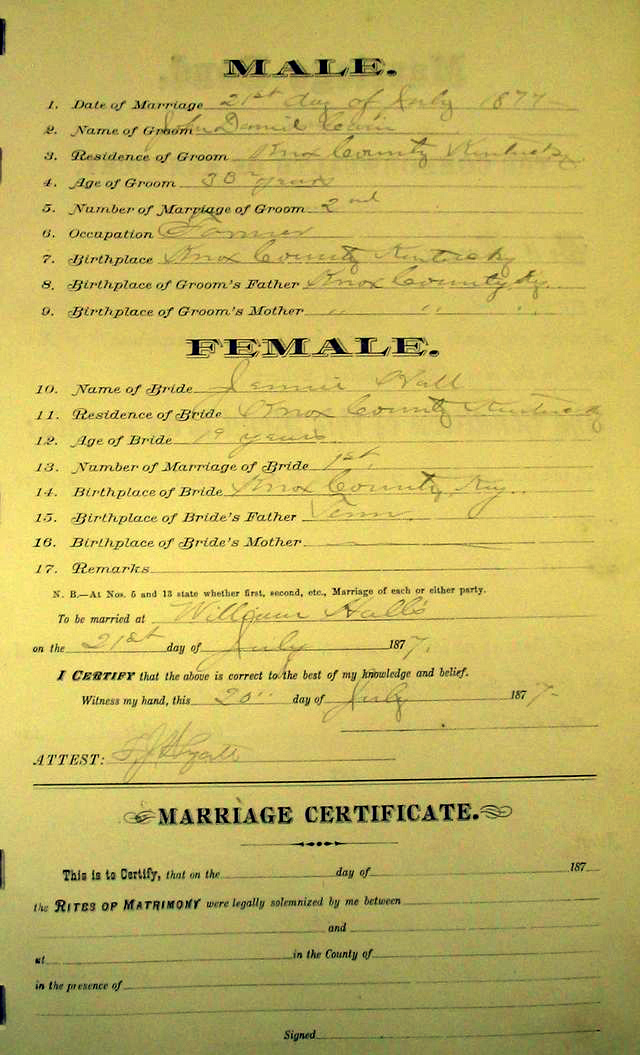 MALE.
1. Date of Marriage 21st day of July 1877
2. Name of Groom John Daniel
3. Residence of Groom Knox County Kentucky
4. Age of Groom 38 years
5. Number of Marriage of Groom 2nd
6. Occupation Farmer
7. Birthplace Knox County Kentucky
8. Birthplace of Groom's Father Knox County Ky.
9. Birthplace of Groom's Mother " " "
FEMALE.
10. Name of Bride Jennie Hall
11. Residence of Bride Knox County Kentucky
12. Age of Bride 19 years
13. Number of Marriage of Bride 1st.
14. Birthplace of Bride Knox County, Ky.
15. Birthplace of Bride's Father Tenn
16. Birthplace of Bride's Mother
17. Remarks
N. B.—At Nos. 5 and 13 state whether first, second, etc., Marriage of each or either party.
To be married at William Halls
on the 21st day of July 1877.
I CERTIFY that the above is correct to the best of my knowledge and belief.
Witness my hand, this 20" day of July 1877
ATTEST:
MARRIAGE CERTIFICATE.
This is to Certify, that on the day of 187
the RITES OF MATRIMONY were legally solemnized by me between
and
at in the County of
in the presence of
Signed